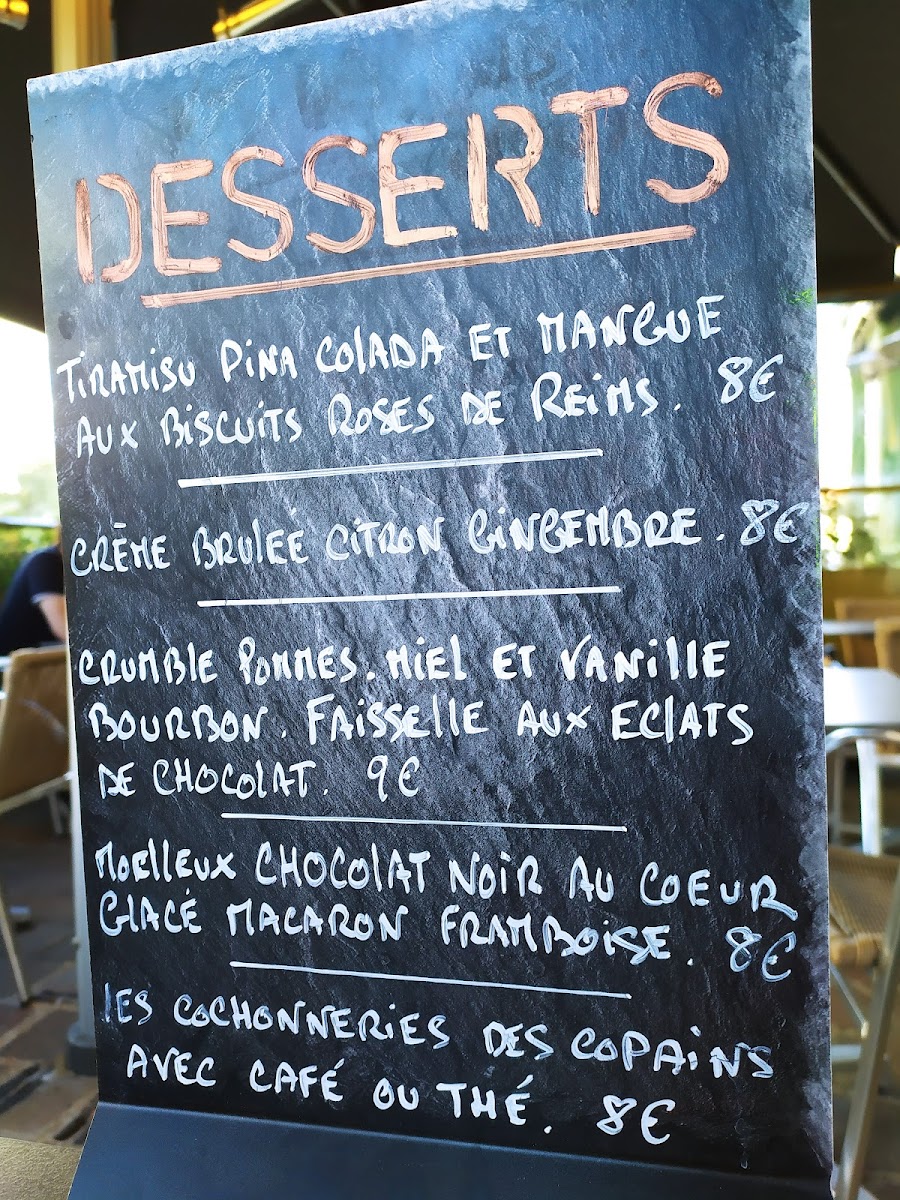 DESSERTS
TIRAMISU PINA COLADA ET MANGUE
AUX BISCUITS ROSES DE REIMS. 8€
CRÈME BRULEÉ CITRON GINGEMBRE. 8€
CRUMBLE POMMES. MIEL ET VANILLE
BOURBON. FAISSELLE AUX ECLATS
DE CHOCOLAT. 9€
MOELLEUX CHOCOLAT NOIR AU COEUR
GLACÉ MACARON FRAMBOISE. 8€
LES COCHONNERIES DES COPAINS
AVEC CAFÉ OU THÉ. 8€